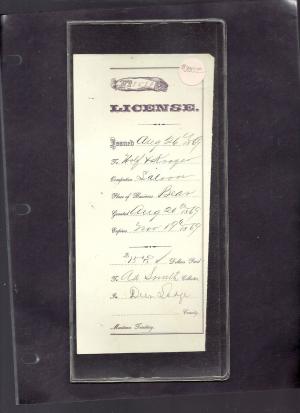 LICENSE.
Issued Aug 26 1869
To Wolf & Kroger
Occupation Saloon
Place of Business Bear
Granted Aug 20 1869
Expires Nov 19 1869
$15 Dollars Paid
To Ad Smith Collector,
In Deer Lodge
County,
Montana Territory.